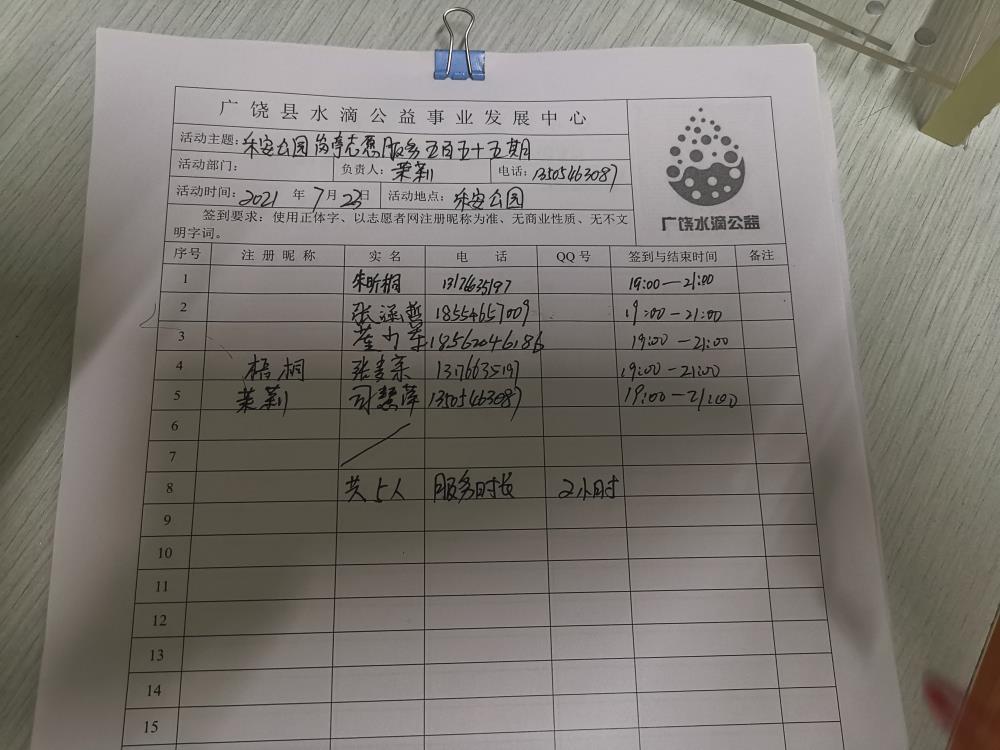 广饶县水滴公益事业发展中心
活动主题：乐安公园岗亭志愿服务五百五十五期
活动部门： 负责人：茉莉 电话：13505463087
活动时间：2021 年 7 月 23日 活动地点：乐安公园
签到要求：使用正体字、以志愿者网注册昵称为准、无商业性质、无不文
明字词。
广饶水滴公益
序号 注册昵称 实名 电话 QQ号 签到与结束时间 备注
1 朱昕桐 13176635197 19:00—21:00
2 张涵哲 18554657009 19:00—21:00
3 18562046186 19:00—21:00
4 梧桐 13176635197 19:00—21:00
5 茉莉 司慧萍 13505463087 19:00—21:00
6
7
8 共5人 服务时长 2小时
9
10
11
12
13
14
15